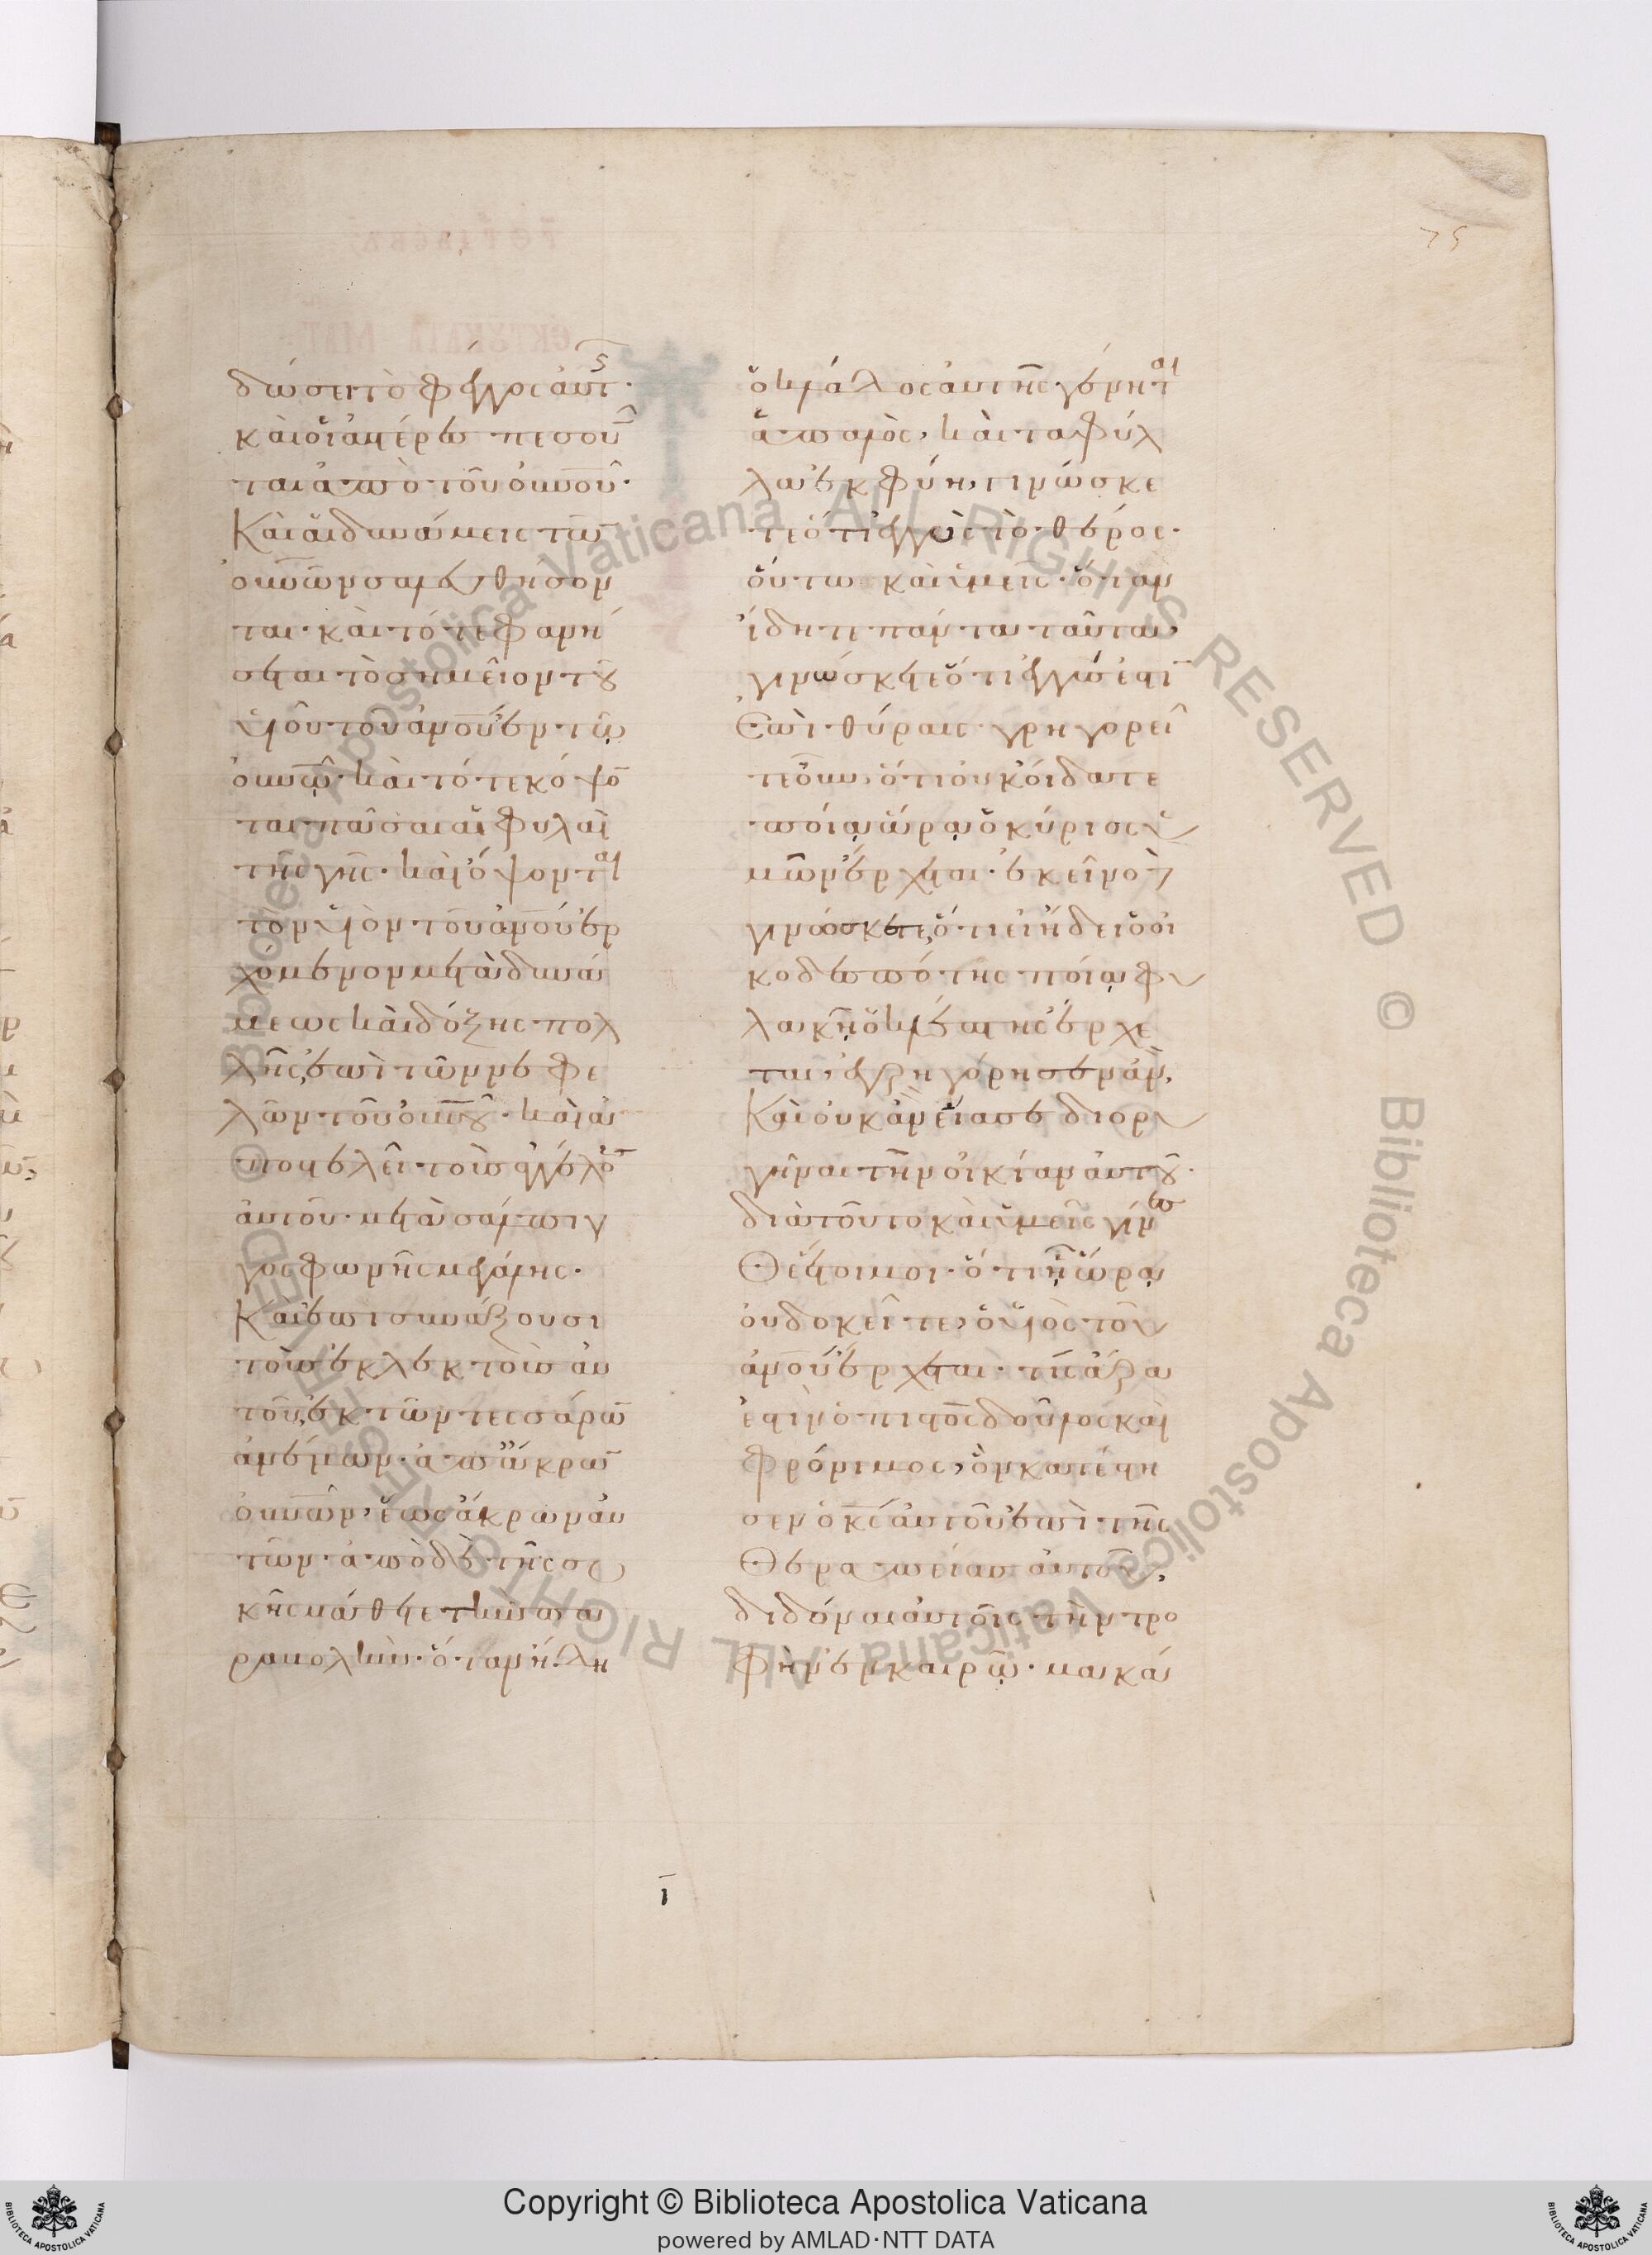 75
δώσει τὸ φέγγος αὐτ(ῆς)·
καὶ οἱ ἀστέρες πεσοῦν
ται ἀπὸ τοῦ οὐνοῦ·
Καὶ αἱ δυνάμεις τῶν
οὐνῶν σαλευθήσον
ται· καὶ τότε φανή
σεται τὸ σημεῖον τοῦ
υἱοῦ τοῦ ἀνοῦ ἐν τῷ
οὐνῷ· καὶ τότε κόψον
ται πᾶσαι αἱ φυλαὶ
τῆς γῆς· καὶ ὄψονται
τὸν υἱὸν τοῦ ἀνοῦ ἐρ
χόμενον μετὰ δυνά
μεως καὶ δόξης πολ
λῆς, ἐπὶ τῶν νεφε
λῶν τοῦ οὐνοῦ· καὶ ἀ
ποστελεῖ τοὺς ἀγγέλους
αὐτοῦ· μετὰ σάλπιγ
γος φωνῆς μεγάλης·
Καὶ ἐπισυνάξουσι
τοὺς ἐκλεκτοὺς αὐ
τοῦ, ἐκ τῶν τεσσάρων
ἀνέμων· ἀπ' ἄκρων
οὐνῶν, ἕως ἄκρων αὐ
τῶν· ἀπὸ δὲ τῆς συ
κῆς μάθετε τὴν πα
ραβολήν· ὅταν ἤδη
ὁ κλάδος αὐτῆς γένηται
ἁπαλὸς, καὶ τὰ φύλ
λα ἐκφύῃ, γινώσκε
τε ὅτι ἐγγὺς τὸ θέρος·
οὕτω καὶ ὑμεῖς· ὅταν
ἴδητε πάντα ταῦτα,
γινώσκετε ὅτι ἐγγύς ἐστιν
ἐπὶ θύραις· γρηγορεῖ
τε οὖν, ὅτι οὐκ οἴδατε
ποίᾳ ὥρᾳ ὁ κύριος ὑ
μῶν ἔρχεται· ἐκεῖνο δὲ
γινώσκετε, ὅτι εἰ ᾔδει ὁ οἰ
κοδεσπότης ποίᾳ φυ
λακῇ ὁ κλέπτης ἔρχε
ται, ἐγρηγόρησεν ἄν,
Καὶ οὐκ ἂν εἴασε διορυ
γῆναι τὴν οἰκίαν αὐτοῦ·
διὰ τοῦτο καὶ ὑμεῖς γίνεσ
θε ἕτοιμοι· ὅτι ᾗ ὥρᾳ
οὐ δοκεῖτε, ὁ υἱὸς τοῦ
ἀνοῦ ἔρχεται· τίς ἄρα
ἐστὶν ὁ πιστὸς δοῦλος καὶ
φρόνιμος, ὃν κατέστη
σεν ὁ κς αὐτοῦ ἐπὶ τῆς
θεραπείας αὐτοῦ,
διδόναι αὐτοῖς τὴν τρο
φὴν ἐν καιρῷ· μακά
ι
Copyright © Biblioteca Apostolica Vaticana
powered by AMLAD·NTT DATA